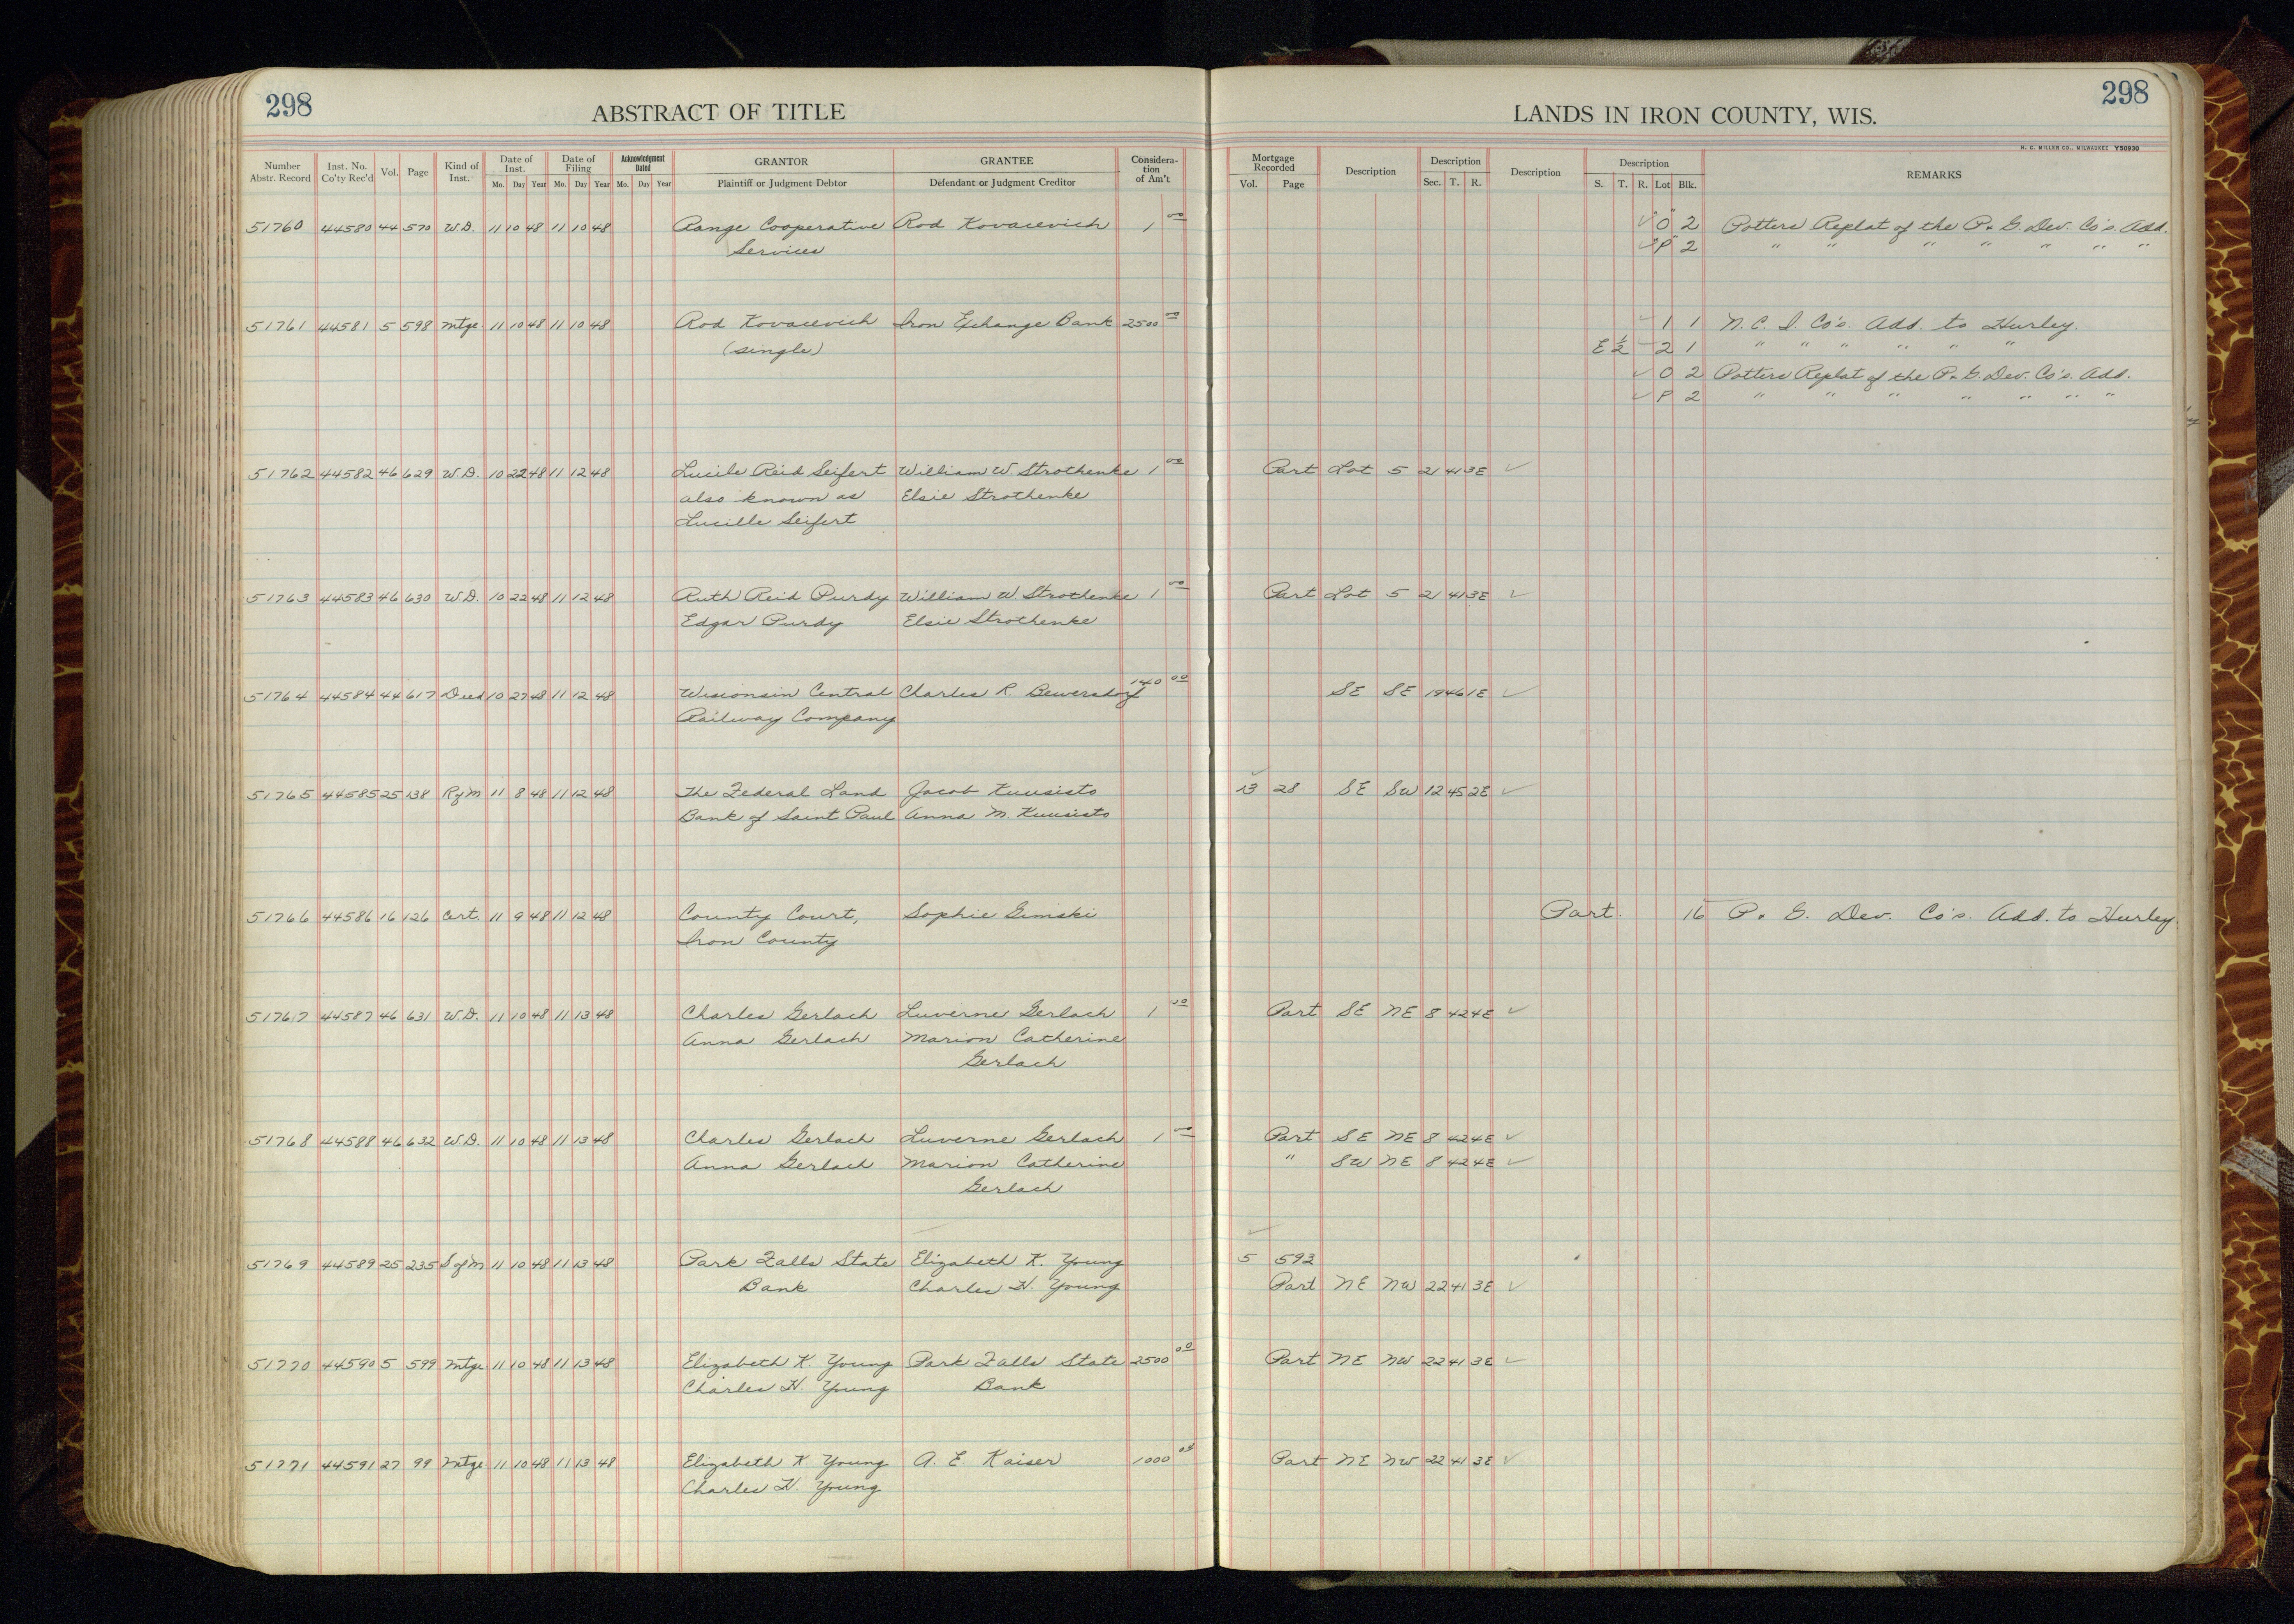 298
ABSTRACT OF TITLE
LANDS IN IRON COUNTY, WIS.
298
H. C. MILLER CO., MILWAUKEE Y50930
Number Abstr. Record Inst. No. Co'ty Rec'd Vol. Page Kind of Inst. Date of Inst. Mo. Day Year Date of Filing Mo. Day Year Acknowledgment Dated Mo. Day Year GRANTOR Plaintiff or Judgment Debtor GRANTEE Defendant or Judgment Creditor Consideration of Am't Mortgage Recorded Vol. Page Description Description Sec. T. R. Description Description S. T. R. Lot Blk. REMARKS
51760 44580 44 570 W.D. 11 10 48 11 10 48 Range Cooperative Rod Kovacevich 1 00 ✓ O 2 Potters Replat of the P. & G. Dev. Co's. Add.
Services ✓ P 2 " " " " " " "
51761 44581 5 598 Mtge. 11 10 48 11 10 48 Rod Kovacevich Iron Exchange Bank 2500 00 ✓ 1 1 N. C. I. Co's. Add. to Hurley.
(single) E 1/2 ✓ 2 1 " " " " " "
✓ O 2 Potters Replat of the P. & G. Dev. Co's. Add.
✓ P 2 " " " " " " "
51762 44582 46 629 W.D. 10 22 48 11 12 48 Lucile Reid Seifert William W. Strothenke 1 00 Part Lot 5 21 41 3E ✓
also known as Elsie Strothenke
Lucille Seifert
51763 44583 46 630 W.D. 10 22 48 11 12 48 Ruth Reid Purdy William W. Strothenke 1 00 Part Lot 5 21 41 3E ✓
Edgar Purdy Elsie Strothenke
51764 44584 44 617 Deed 10 27 48 11 12 48 Wisconsin Central Charles R. Bewersdorf 140 00 SE SE 19 46 1E ✓
Railway Company
51765 44585 25 138 RofM 11 8 48 11 12 48 The Federal Land Jacob Kuusisto ✓ 13 28 SE SW 12 45 2E ✓
Bank of Saint Paul Anna M. Kuusisto
51766 44586 16 126 Cert. 11 9 48 11 12 48 County Court, Sophie Gimski Part. 16 P. & G. Dev. Co's. Add. to Hurley.
Iron County
51767 44587 46 631 W.D. 11 10 48 11 13 48 Charles Gerlach Luverne Gerlach 1 00 Part SE NE 8 42 4E ✓
Anna Gerlach Marion Catherine
Gerlach
51768 44588 46 632 W.D. 11 10 48 11 13 48 Charles Gerlach Luverne Gerlach 1 00 Part SE NE 8 42 4E ✓
Anna Gerlach Marion Catherine " SW NE 8 42 4E ✓
Gerlach
51769 44589 25 235 SofM 11 10 48 11 13 48 Park Falls State Elizabeth K. Young ✓ 5 592
Bank Charles H. Young Part NE NW 22 41 3E ✓
51770 44590 5 599 Mtge 11 10 48 11 13 48 Elizabeth K. Young Park Falls State 2500 00 Part NE NW 22 41 3E ✓
Charles H. Young Bank
51771 44591 27 99 Mtge 11 10 48 11 13 48 Elizabeth K Young A. E. Kaiser 1000 00 Part NE NW 22 41 3E ✓
Charles H. Young